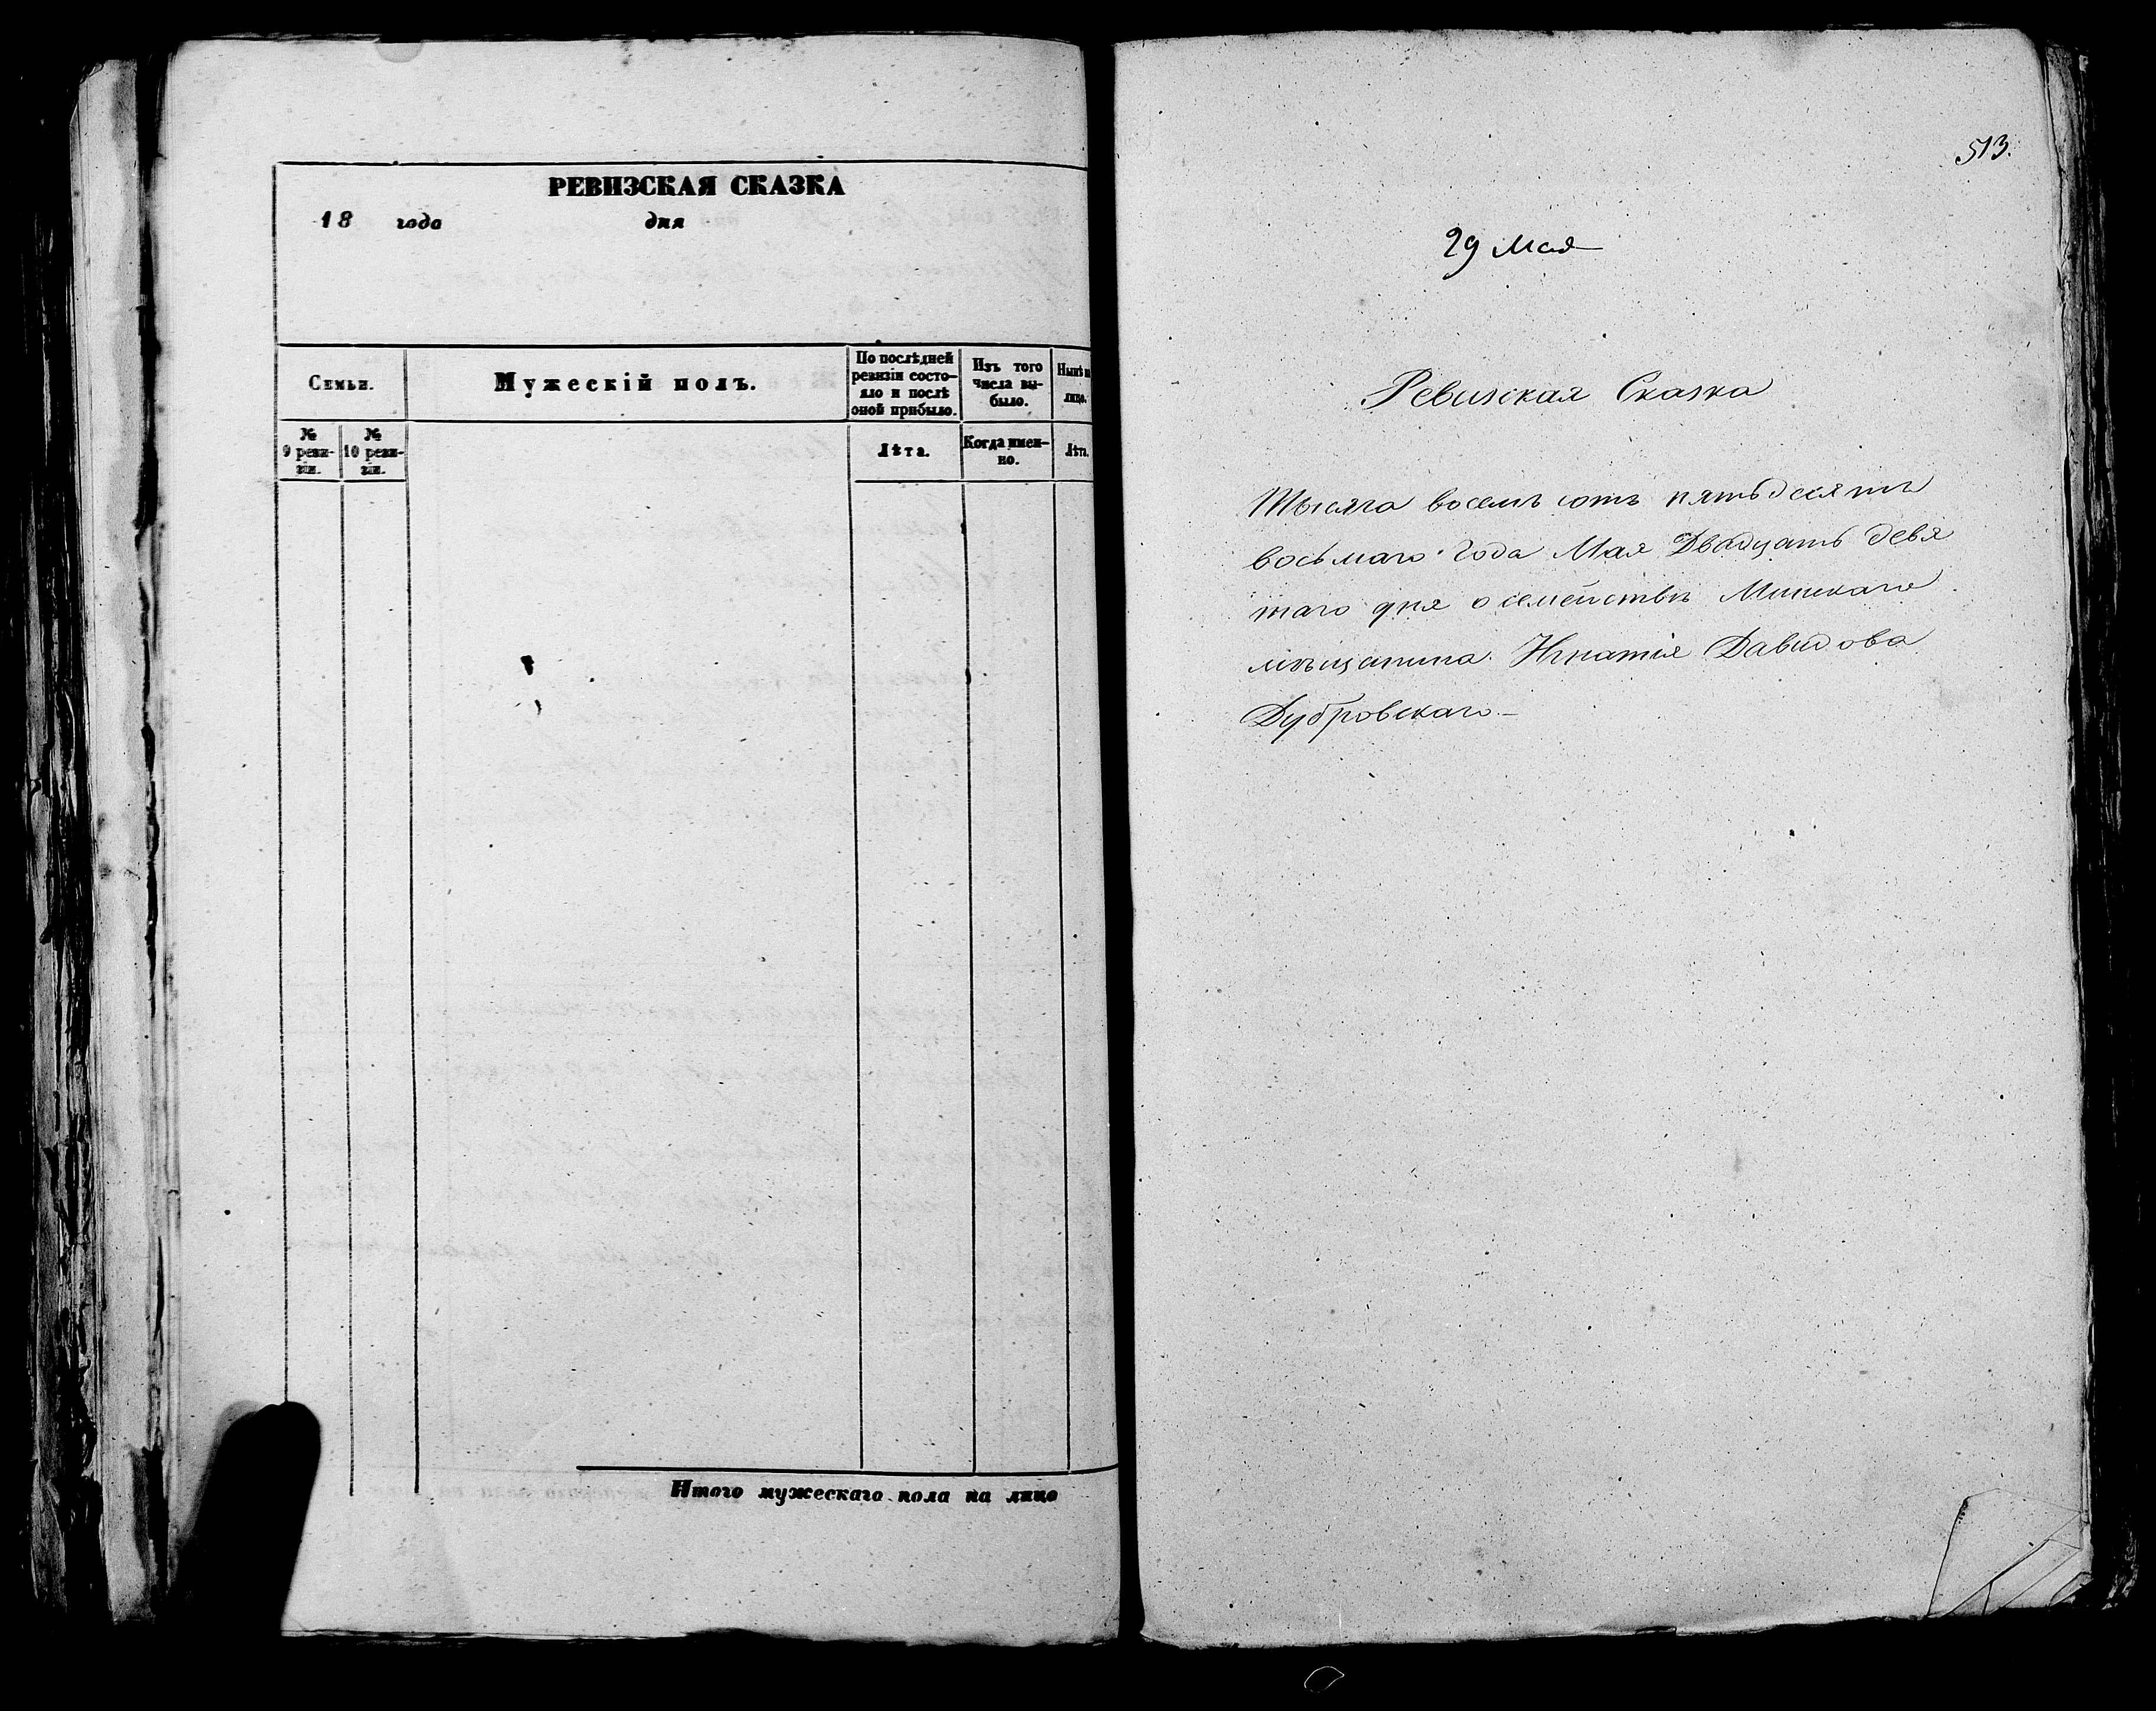 РЕВИЗСКАЯ СКАЗКА
18 года дня
Семьи.
Мужескій полъ.
По послѣдней
ревизіи состо-
яло и послѣ
оной прибыло.
Изъ того
числа вы-
было.
Нынѣ н
лицо.
№
9 реви-
зіи.
№
10 реви-
зіи.
Лѣта.
Когда имен-
но.
Лѣта.
Итого мужескаго пола на лицо
513.
29 Мая
Ревизская Сказка
Тысяча восемь сотъ пятьдесятъ
восьмаго Года Мая Двадцать девя
таго дня о семействѣ Минскаго
мѣщанина Игнатія Давидова
Дубровскаго.–